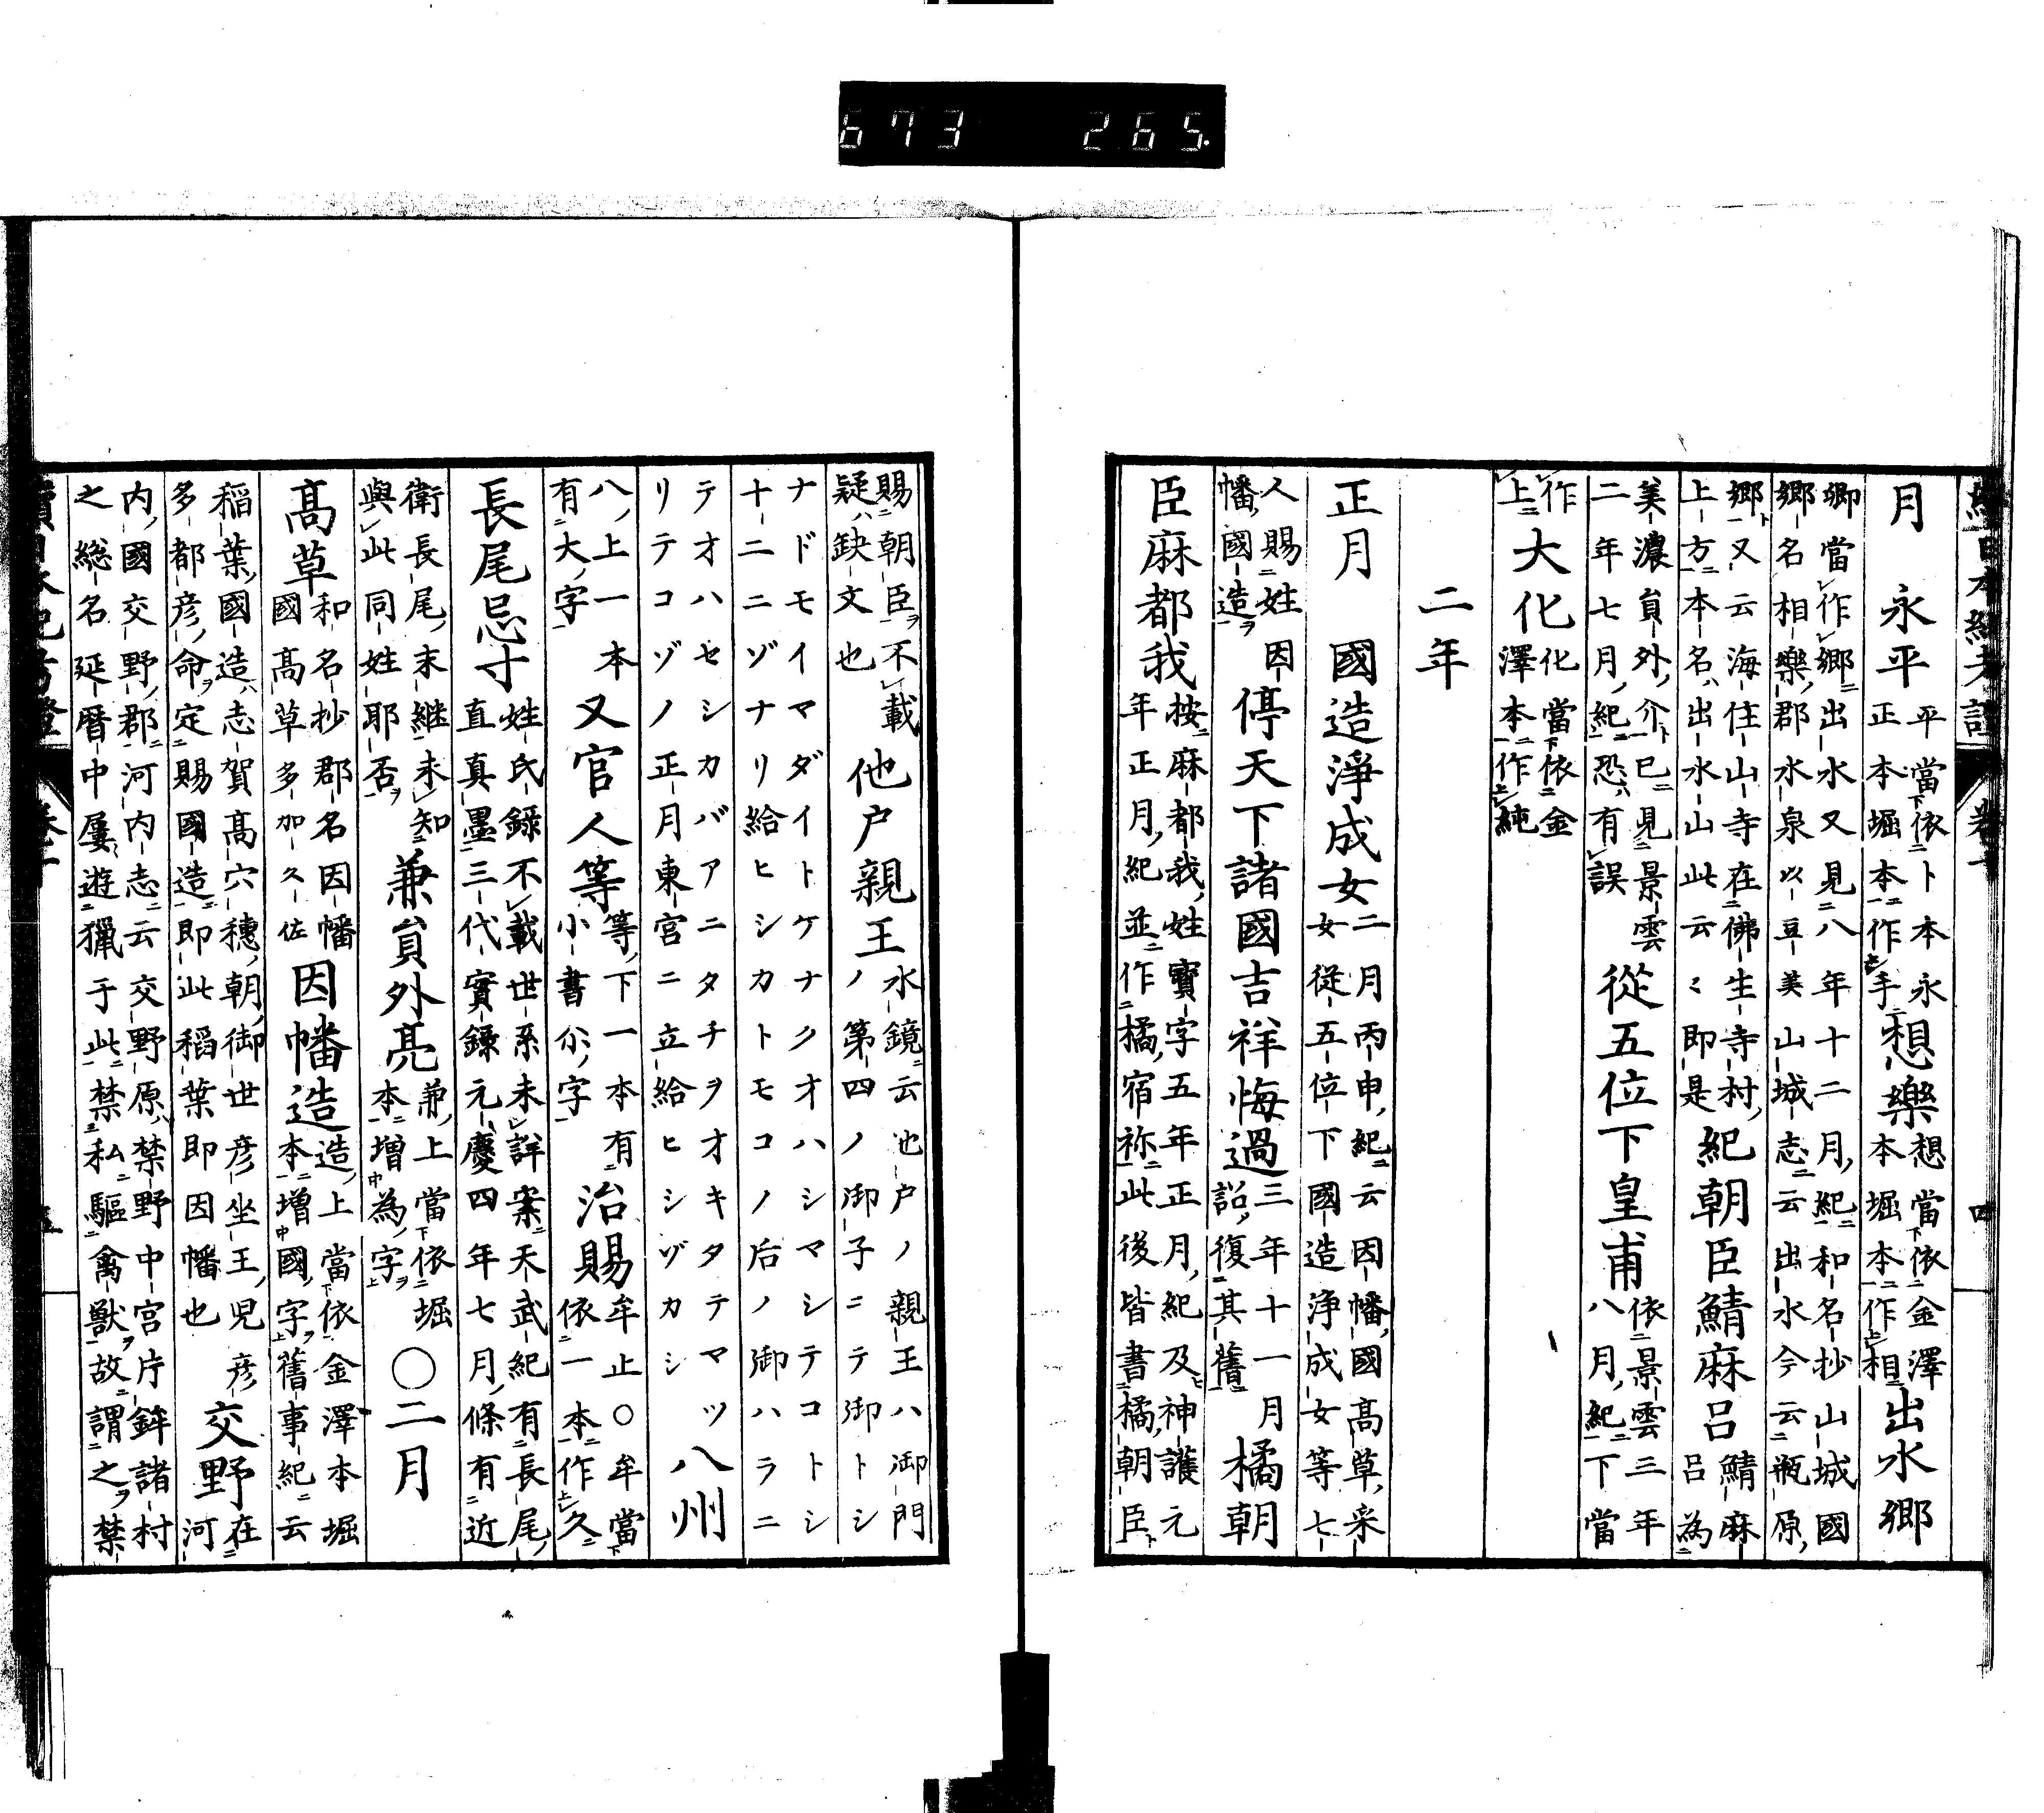 673 265.
續日本紀考證 卷十一 四
月 永平 平當依卜本永正本堀本作手 想樂 想當依金澤本堀本作相 出水鄉
鄉當作鄉出水又見八年十二月紀和名抄山城國
鄉名相樂郡水泉以豆美山城志云出水今云瓶原
鄉又云海住山寺在佛生寺村
上方本名出水山此云々即是 紀朝臣鯖麻呂 鯖麻呂為
美濃員外介已見景雲二年七月紀恐有誤 從五位下皇甫 依景雲三年八月紀下當
作上 大化 化當依金澤本作純
二年
正月 國造淨成女 二月丙申紀云因幡國高草采女從五位下國造淨成女等七
人賜姓因幡國造 停天下諸國吉祥悔過 三年十一月詔復其舊 橘朝
臣麻都我 按麻都我姓寶字五年正月紀及神護元年正月紀並作橘宿祢此後皆書橘朝臣
賜朝臣不載疑缺文也 他戶親王 水鏡云他戶ノ親王ハ御門ノ第四ノ御子ニテ御トシ
ナドモイマダイトケナクオハシマシテコトシ
十二ニゾナリ給ヒシカトモコノ后ノ御ハラニ
テオハセシカバアニタチヲオキタテマツ
リテコゾノ正月東宮ニ立給ヒシヅカシ 八州
八上一本有大字 又官人等 等下一本有小書尒字 治賜 牟止○牟當依一本作久
長尾忌寸 姓氏錄不載世系未詳案天武紀有長尾直真墨三代實錄元慶四年七月條有近
衛長尾末継未知與此同姓耶否 兼員外亮 兼上當依堀本增為字 ○二月
高草 和名抄郡名因幡國高草多加久佐 因幡造 造上當依金澤本堀本增國字舊事紀云
稻葉國造志賀高穴穗朝御世彥坐王兒彥多都彥命定賜國造即此稻葉即因幡也 交野 在河
內國交野郡河內志云交野原禁野中宮片鉾諸村
之総名延曆中屢遊獵于此禁私驅禽獸故謂之禁
續日本紀考證 卷十一 五